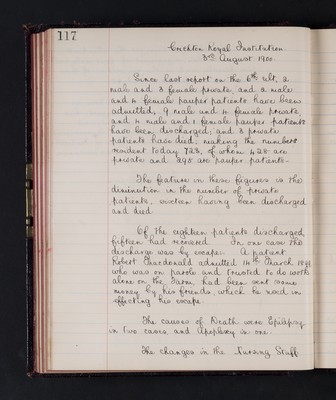 117
Crichton Royal Institution
3rd August 1900.
Since last report on the 6th ult, 2
male and 3 female private, and 2 male
and 4 female pauper patients have been
admitted, 9 male and 4 female private,
and 4 male and 1 female pauper patients
have been discharged; and 3 private
patients have died, making the numbers
resident today 723, of whom 425 are
private and 298 are pauper patients.
The feature in these figures is the
diminution in the number of private
patients, sixteen having been discharged
and died.
Of the eighteen patients discharged,
fifteen had recovered. In one case the
discharge was by escape. A patient
Robert Macdonald admitted 14th March
who was on parole and trusted to do work
alone on the farm had been sent some
money by his friends, which he used in
effecting his escape.
The causes of Death were Epilepsy
in two cases and Apoplexy in one.
The changes in the Nursing Staff